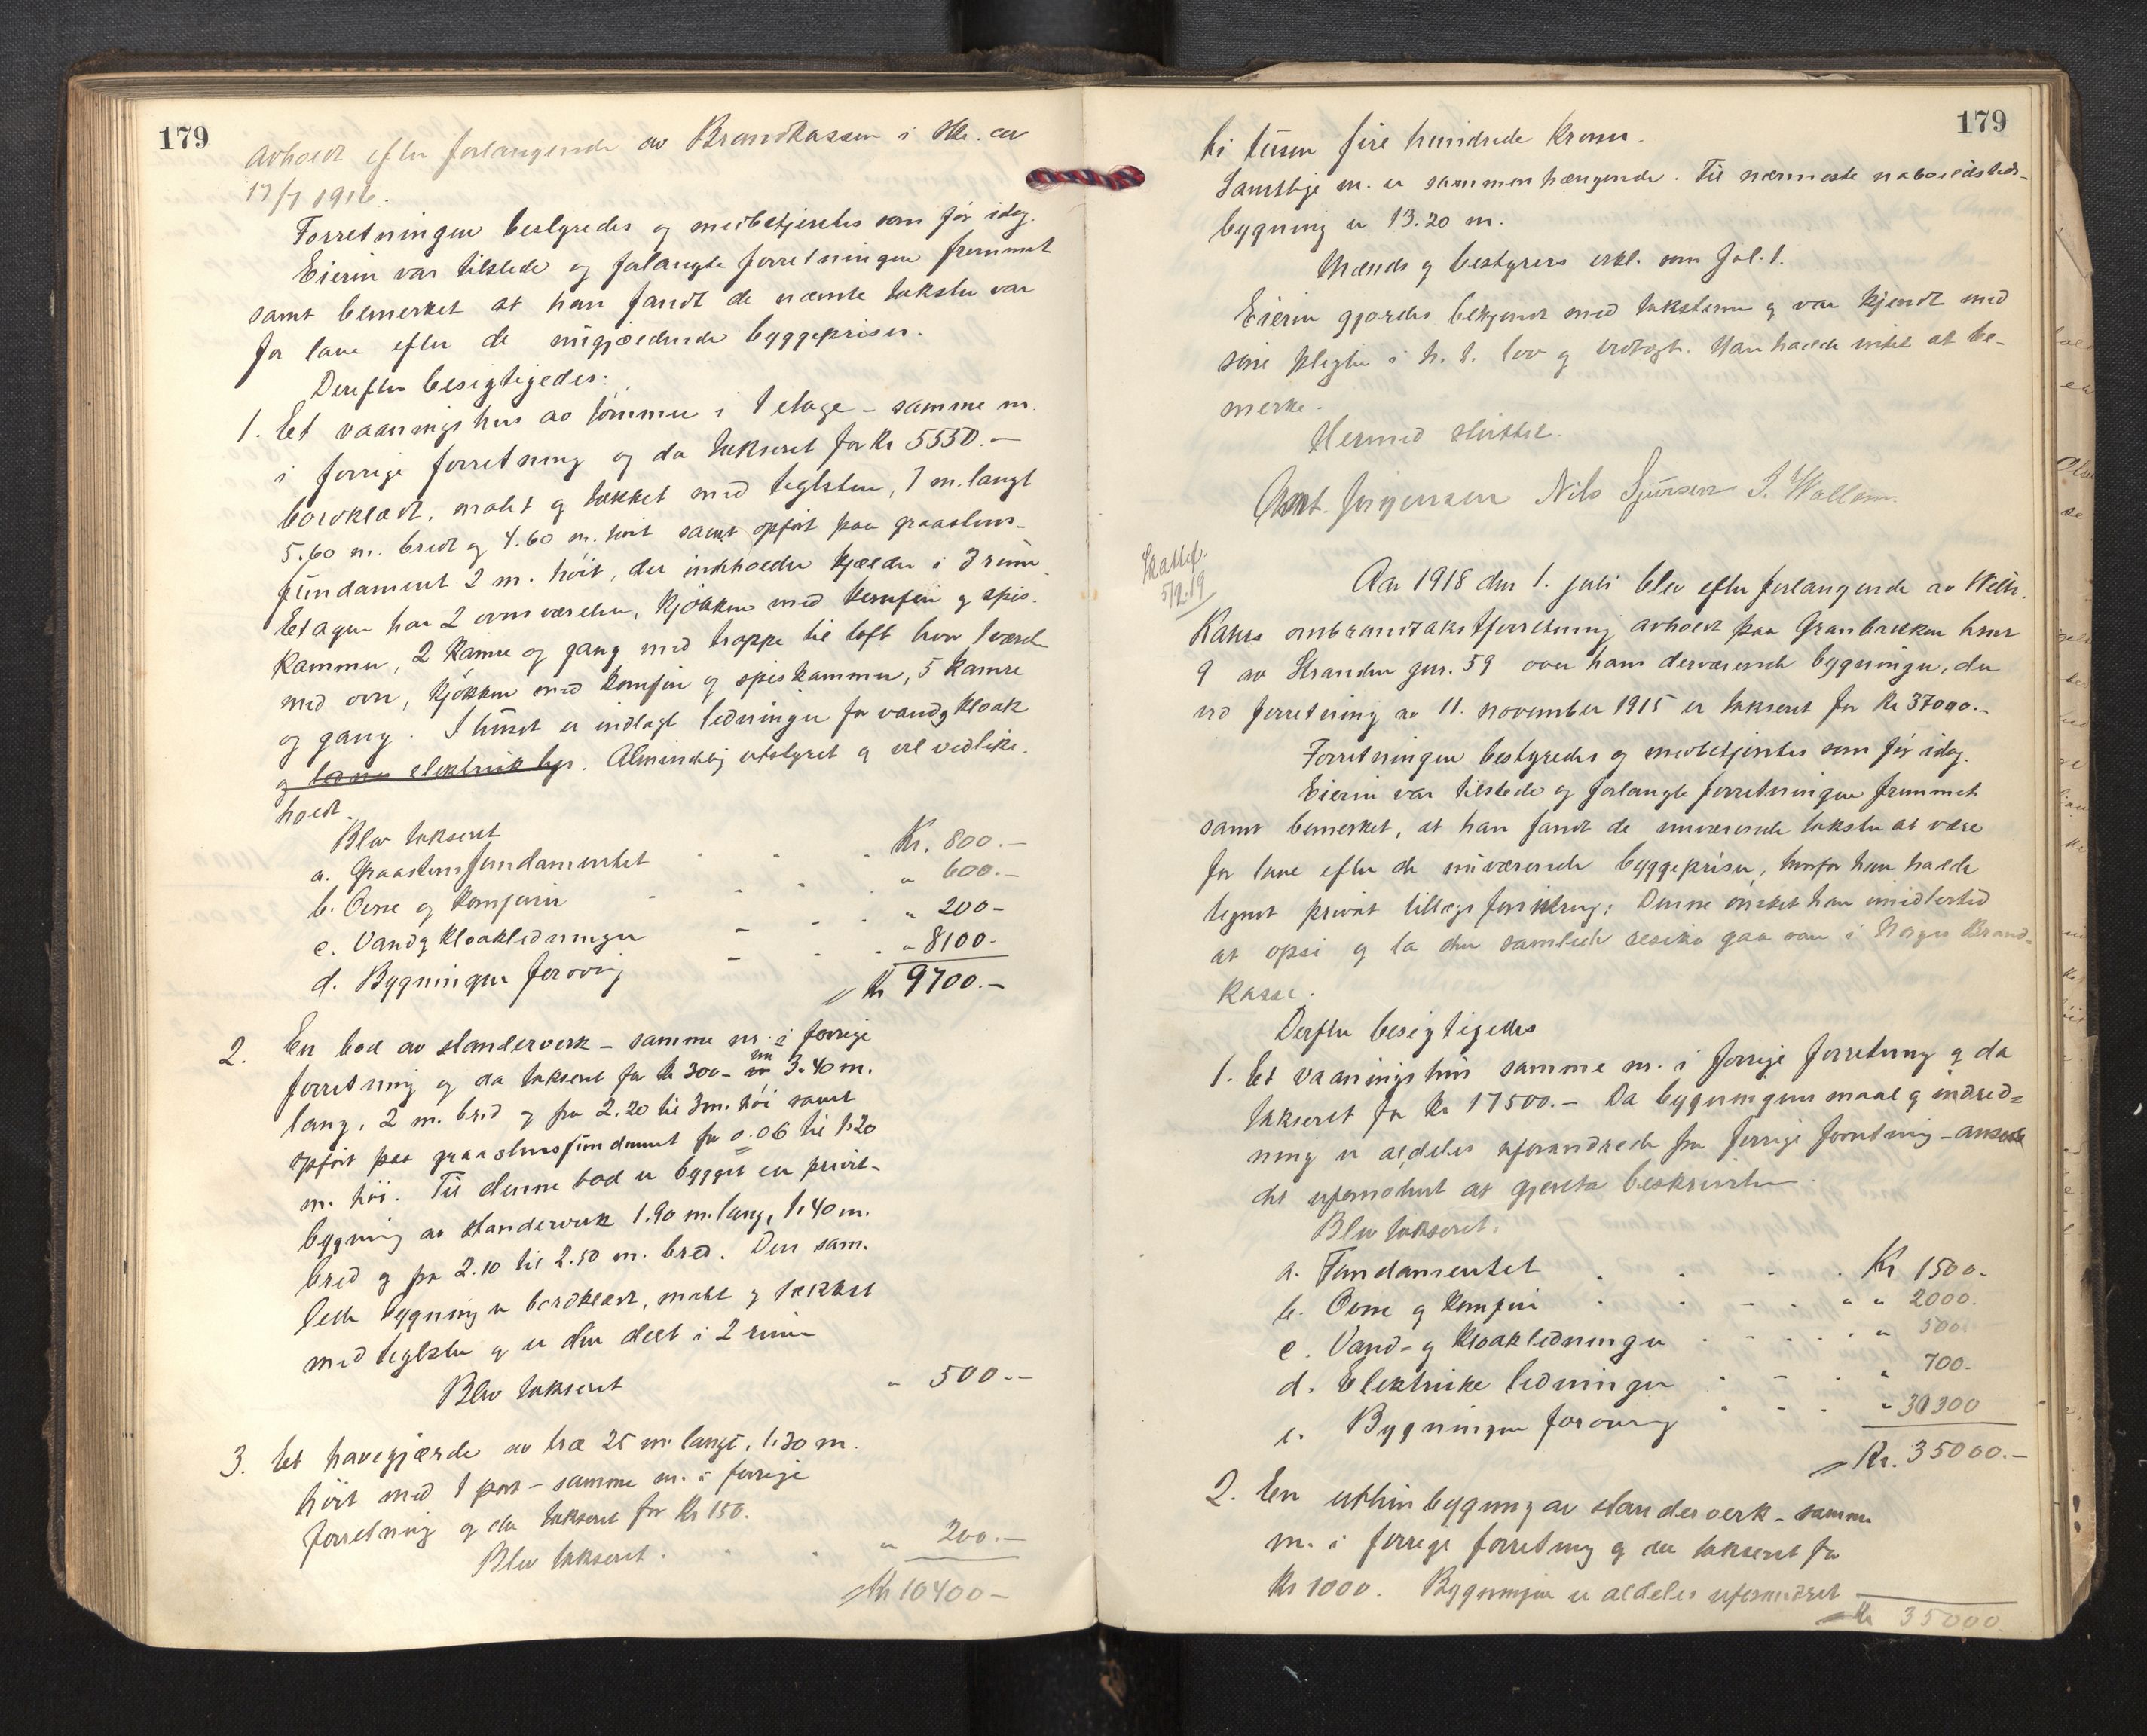 179
avholdt efter forlangende av Brandkassen i skr. av
17/7 1916.
Forretningen bestyredes og medbetjentes som før idag.
Eieren var tilstede og forlangte forretningen fremmet
samt bemerket at han fandt de nævnte takster var
for lave efter de nugjældende byggepriser.
Derefter besigtigedes:
1. Et vaaningshus av tømmer i 1 etage – samme nr.
i forrige forretning og da takseret for kr 5550.–
bordklædt, malet og tækket med teglsten, 7 m. langt
5.60 m. bredt og 4.60 m. høit samt opført paa graastens-
fundament 2 m. høit, der indeholder kjælder i 3 rum
Etagen har 2 ovnsværelser, kjøkken med komfur og spis-
kammer, 2 kamre og gang med trappe til loft hvor 1 værelse
med ovn, kjøkken med komfur og spiskammer, 5 kamre
og gang. I huset er indlagt ledninger for vand og kloak
og elektrisk lys. Almindelig utstyret og vel vedlike-
holdt.
Blev takseret
a. Graastensfundamentet Kr. 800.–
b. Ovne og komfurer " 600.–
c. Vand og kloakledninger " 200–
d. Bygningen forøvrig " 8100.
Kr 9700.–
2. En bod av standerverk – samme nr. i forrige
forretning og da takseret for kr 300– nu 3.40 m.
lang, 2 m. bred og fra 2.20 til 3 m. høi samt
opført paa graastensfundament fra 0.06 til 1.20
m. høi. Til denne bod er bygget en privet-
bygning av standerverk 1.90 m. lang, 1.40 m.
bred og fra 2.10 til 2.50 m. bred. Den sam-
lede bygning er bordklædt, malt og tækket
med teglsten og er den delt i 2 rum
Blev takseret " 500.–
3. Et havegjærde av træ 25 m. langt, 1.30 m.
høit med 1 port – samme nr. i forrige
forretning og da takseret for kr 150.
Blev takseret. " 200.–
Kr 10400–
179
ti tusen fire hundrede kroner.
Samtlige nr. er sammenhængende. Til nærmeste naboildsteds-
bygning er 13.20 m.
Mænds og bestyrers erkl. som fol. 1.
Eieren gjordes bekjendt med taksterne og var kjendt med
sine pligter i h. t. lov og vedtægt. Han hadde intet at be-
merke.
Hermed sluttet.
Jørgensen Nils Sjursen J. Wallem
Skattef.
5/2.19
Aar 1918 den 1. juli blev efter forlangende av Wilh.
Kahrs ombrandtakstforretning avholdt paa Granbakken bnr
9 av Stranden gnr. 59 over hans derværende bygninger, der
ved forretning av 11. november 1915 er takseret for kr 37000.–
Forretningen bestyredes og medbetjentes som før idag.
Eieren var tilstede og forlangte forretningen fremmet
samt bemerket, at han fandt de nuværende takster at være
for lave efter de nuværende byggepriser, hvorfor han hadde
tegnet privat tillægsforsikring; Denne ønsket han imidlertid
at opsi og la den samlede risiko gaa over i Norges Brand-
kasse.
Derefter besigtigedes
1. Et vaaningshus samme nr. i forrige forretning og da
takseret for kr 17500.– Da bygningens maal og indred-
ning er aldeles uforandrede fra forrige forretning – ansees
det ufornødent at gjenta beskrivelsen.
Blev takseret:
a. Fundamentet Kr 1500.
b. Ovne og komfur " " 2000.
c. Vand- og kloakledninger " 500.
d. Elektriske ledninger " 700.
e. Bygningen forøvrig " 30300
Kr. 35000.–
2. En uthusbygning av standerverk – samme
nr. i forrige forretning og da takseret for
kr 1000. Bygningen er aldeles uforandret
Kr 35000.